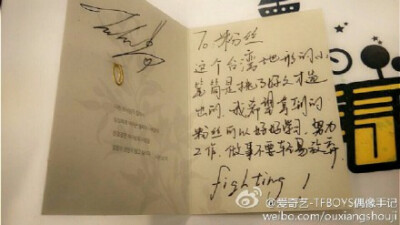 To 粉丝
这个台湾地形的小
笔筒是挑了好久才选
出的，我希望拿到的
粉丝可以好好学习，努力
工作，做事不要轻易放弃.
fighting !
@爱奇艺-TFBOYS偶像手记
weibo.com/ouxiangshouji